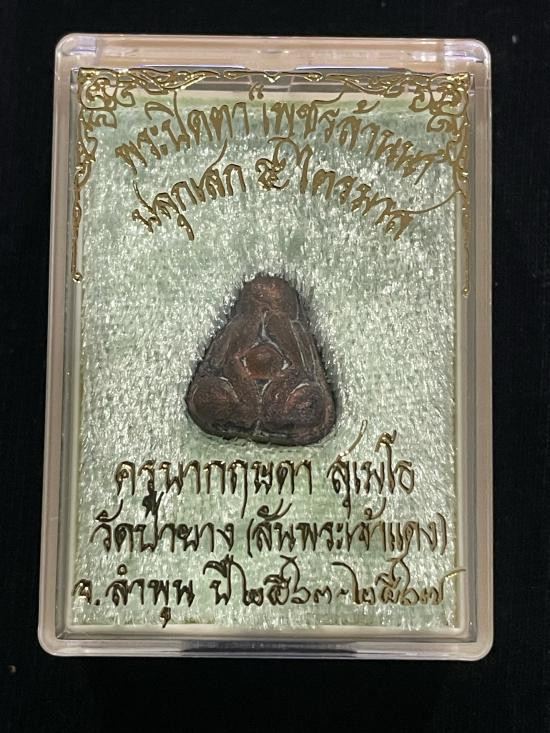 พระปิดตา เพชรล้านนา
ปลุกเสก ๕ ไตรมาส
ครูบากฤษดา สุเมโธ
วัดป่ายาง (สันพระเจ้าแดง)
จ.ลำพูน ปี๒๕๖๓-๒๕๖๗